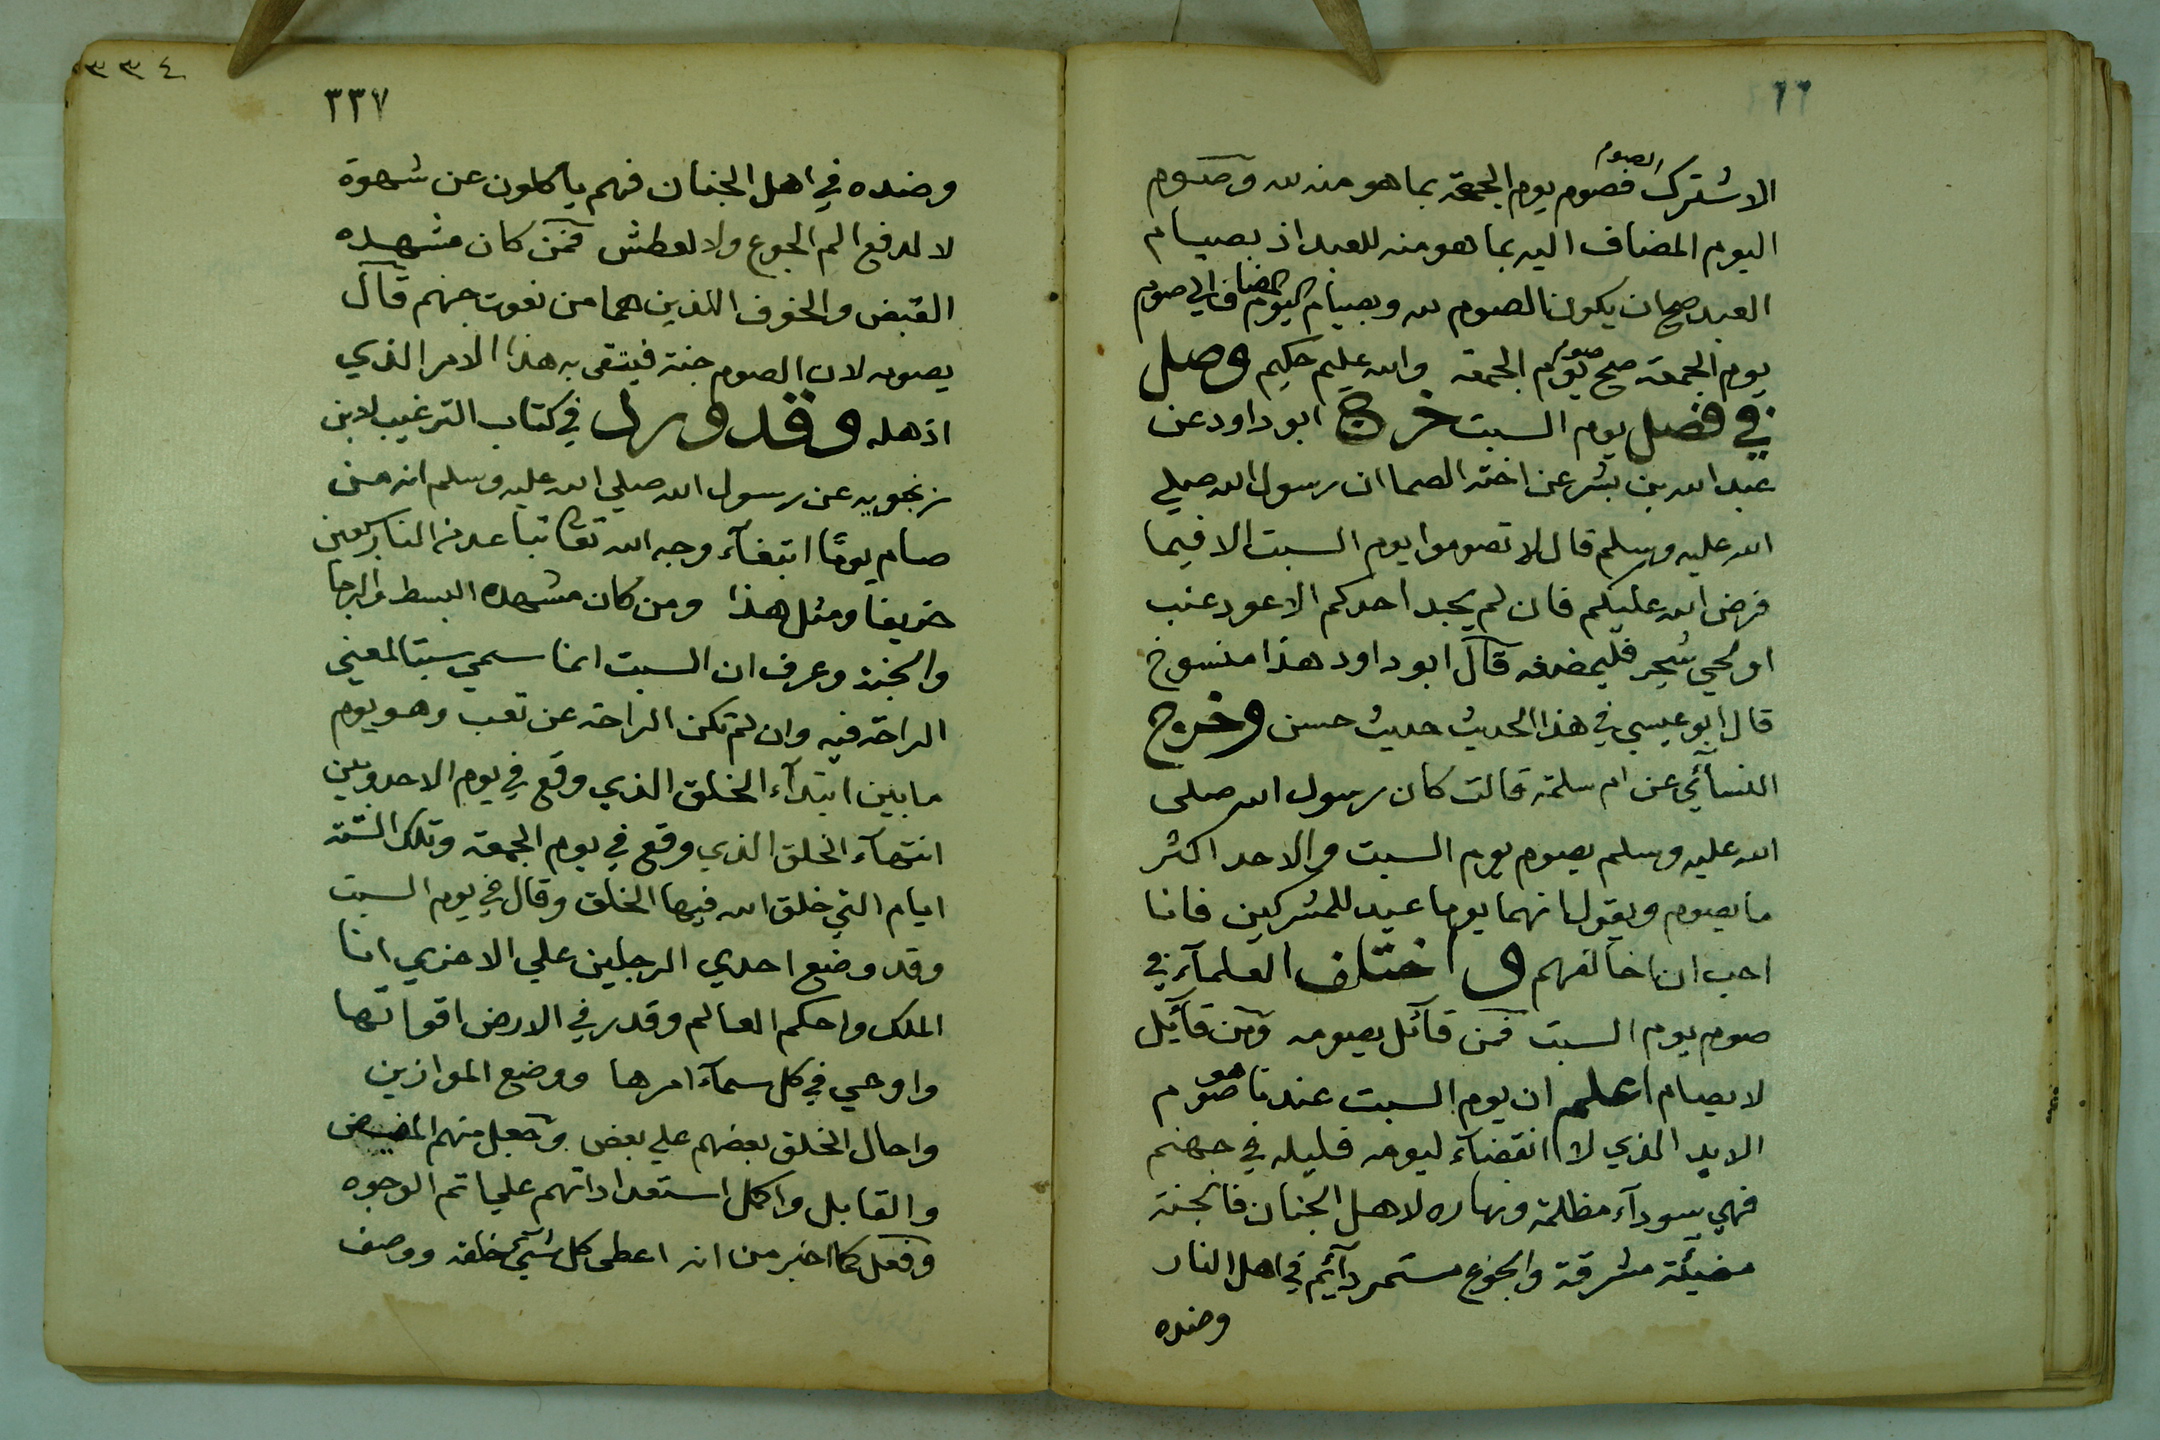 ٦٦
الاشترك الصوم فصوم يوم الجمعة بما هو منه لله وصوم
اليوم المضاف اليه بما هو منه للعبد اذ بصيام
العبد صح ان يكون الصوم لله وبصيام اليوم المضاف الي صوم
يوم الجمعة صح صوم يوم الجمعة والله عليم حكيم وصل
في فضل يوم السبت خرج ابو داود عن
عبد الله بن بشر عن اخته الصما ان رسول الله صلي
الله عليه وسلم قال لا تصوموا يوم السبت الا فيما
فرض الله عليكم فان لم يجد احدكم الا عود عنب
او لحي شجر فليمضغه قال ابو داود هذا منسوخ
قال ابو عيسي في هذا الحديث حديث حسن وخرج
النسآئي عن ام سلمة قالت كان رسول الله صلي
الله عليه وسلم يصوم يوم السبت والاحد اكثر
ما يصوم ويقول انهما يوما عيد للمشركين فانا
احب ان اخالفهم واختلف العلمآء في
صوم يوم السبت فمن قآئل يصومه ومن قآئل
لا يصام اعلم ان يوم السبت عندنا هو صوم
الابد الذي لا انقضآء ليومه فليله في جهنم
فهي سودآء مظلمة ونهاره لاهل الجنان فالجنة
مضيئة مشرقة والجوع مستمر دآئم في اهل النار
وضده
٣٣٤
٣٣٧
وضده في اهل الجنان فهم ياكلون عن شهوة
لا لدفع الم الجوع ولا لعطش فمن كان مشهده
القبض والخوف اللذين هما من نعوت جهنم قال
يصومه لان الصوم جنة فيتقي به هذا الامر الذي
اذهله وقد ورد في كتاب الترغيب لابن
زنجويه عن رسول الله صلي الله عليه وسلم انه من
صام يوما ابتغآء وجه الله تعا تباعد من النار سبعين
خريفا ومثل هذا ومن كان مشهده البسط والرجا
والجنة وعرف ان السبت انما سمي سبتا لمعني
الراحة فيه وان لم تكن الراحة عن تعب وهو يوم
ما بين ابتدآء الخلق الذي وقع في يوم الاحد وبين
انتهآء الخلق الذي وقع في يوم الجمعة وتلك الستة
ايام التي خلق الله فيها الخلق وقال في يوم السبت
وقد وضع احدي الرجلين علي الاخري انا
الملك واحكم العالم وقدر في الارض اقواتها
واوحي في كل سمآء امرها ووضع الموازين
واحال الخلق بعضهم علي بعض وجعل منهم المفيض
والقابل واكمل استعداداتهم علي اتم الوجوه
وفعل كما اخبر من انه اعطي كل شيئ خلقه ووصف